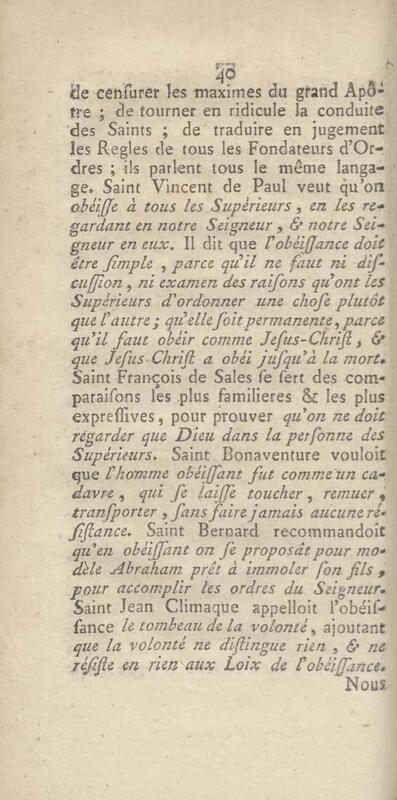 40
de cenſurer les maximes du grand Apô-
tre ; de tourner en ridicule la conduite
des Saints ; de traduire en jugement
les Regles de tous les Fondateurs d'Or-
dres ; ils parlent tous le même langa-
ge. Saint Vincent de Paul veut qu'on
obéiſſe à tous les Supérieurs , en les re-
gardant en notre Seigneur , & notre Sei-
gneur en eux. Il dit que l'obéiſſance doit
être ſimple , parce qu'il ne faut ni diſ-
cuſſion , ni examen des raiſons qu'ont les
Supérieurs d'ordonner une choſe plutôt
que l'autre ; qu'elle ſoit permanente, parce
qu'il faut obéir comme Jeſus-Chriſt , &
que Jeſus-Chriſt a obéi juſqu'à la mort.
Saint François de Sales ſe ſert des com-
paraiſons les plus familieres & les plus
expreſſives, pour prouver qu'on ne doit
régarder que Dieu dans la perſonne des
Supérieurs. Saint Bonaventure vouloit
que l'homme obéiſſant fut comme un ca-
davre , qui ſe laiſſe toucher , remuer ,
tranſporter , ſans faire jamais aucune ré-
ſiſtance. Saint Bernard recommandoit
qu'en obéiſſant on ſe propoſât pour mo-
dèle Abraham prêt à immoler ſon fils ,
pour accomplir les ordres du Seigneur.
Saint Jean Climaque appelloit l'obéiſ-
ſance le tombeau de la volonté, ajoutant
que la volonté ne diſtingue rien , & ne
réſiſte en rien aux Loix de l'obéiſſance.
Nous